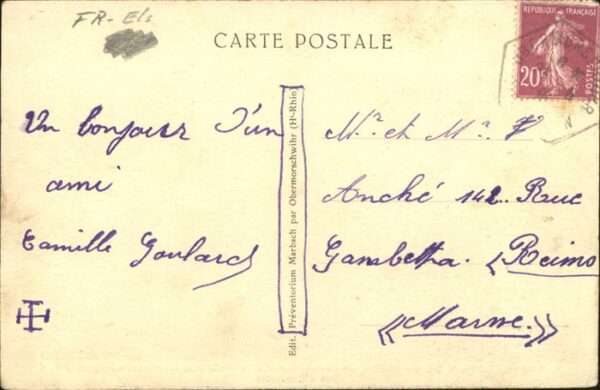 FR-Els
CARTE POSTALE
REPUBLIQUE FRANÇAISE
20c
POSTES
Un bonjour d'un
ami
Camille Goulard
Edit. Préventorium Marbach par Obermorschwihr (Ht-Rhin)
Mr et Me V
Anché 142 Rue
Gambetta. Reims
«Marne.»